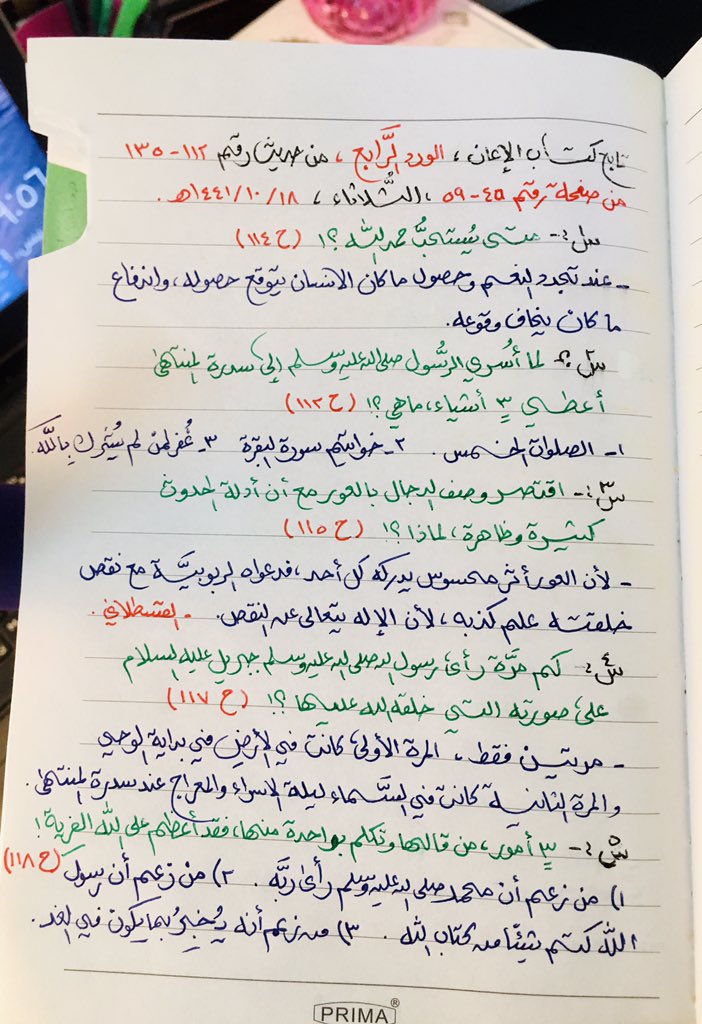 تابع كتاب الإيمان، الورد الرَّابع، من حديث رقم ١١٢-١٣٥
من صفحة رقم ٤٥-٥٩، الثُّلاثاء، ١٤٤١/١٠/١٨هـ.
س١:- متى يُستحبُّ حمد الله؟! (ح١١٤)
- عند تجدد النعم وحصول ما كان الانسان يتوقع حصوله، واندفاع
ما كان يخاف وقوعه.
س٢:- لما أُسري الرَّسُول صلى الله عليه وسلم إلى سدرة المنتهى
أعطي ٣ أشياء، ماهي؟! (ح١١٢)
١- الصلوات الخمس. ٢- خواتيم سورة البقرة ٣- غُفر لمن لم يُشرك بالله.
س٣:- اقتصر وصف الدجال بالعور مع أن أدلة الحدوث
كثيرة وظاهرة، لماذا؟! (ح١١٥)
- لأن العور أثر محسوس يدركه كل أحد، فدعواه الربوبيَّة مع نقص
خلقته علم كذبه، لأن الإله يتعالى عن النقص. - القسطلاني.
س٤:- كم مرَّة رأى رسول الله صلى الله عليه وسلم جبريل عليه السلام
على صورته التي خلقه الله عليها؟! (ح١١٧)
- مرتين فقط، المرة الأولى كانت في الأرض في بداية الوحي
والمرة الثانية كانت في السَّماء ليلة الاسراء والمعراج عند سدرة المنتهى.
س٥:- ٣ أمور، من قالها وتكلم بواحدة منها، فقد أعظم على الله الفرية! (ح١١٨)
١) من زعم أن محمد صلى الله عليه وسلم رأى ربَّه. ٢) من زعم أن رسول
الله كتم شيئًا من كتاب الله. ٣) من زعم أنه يُخبِرُ بما يكون في الغد.
PRIMA®